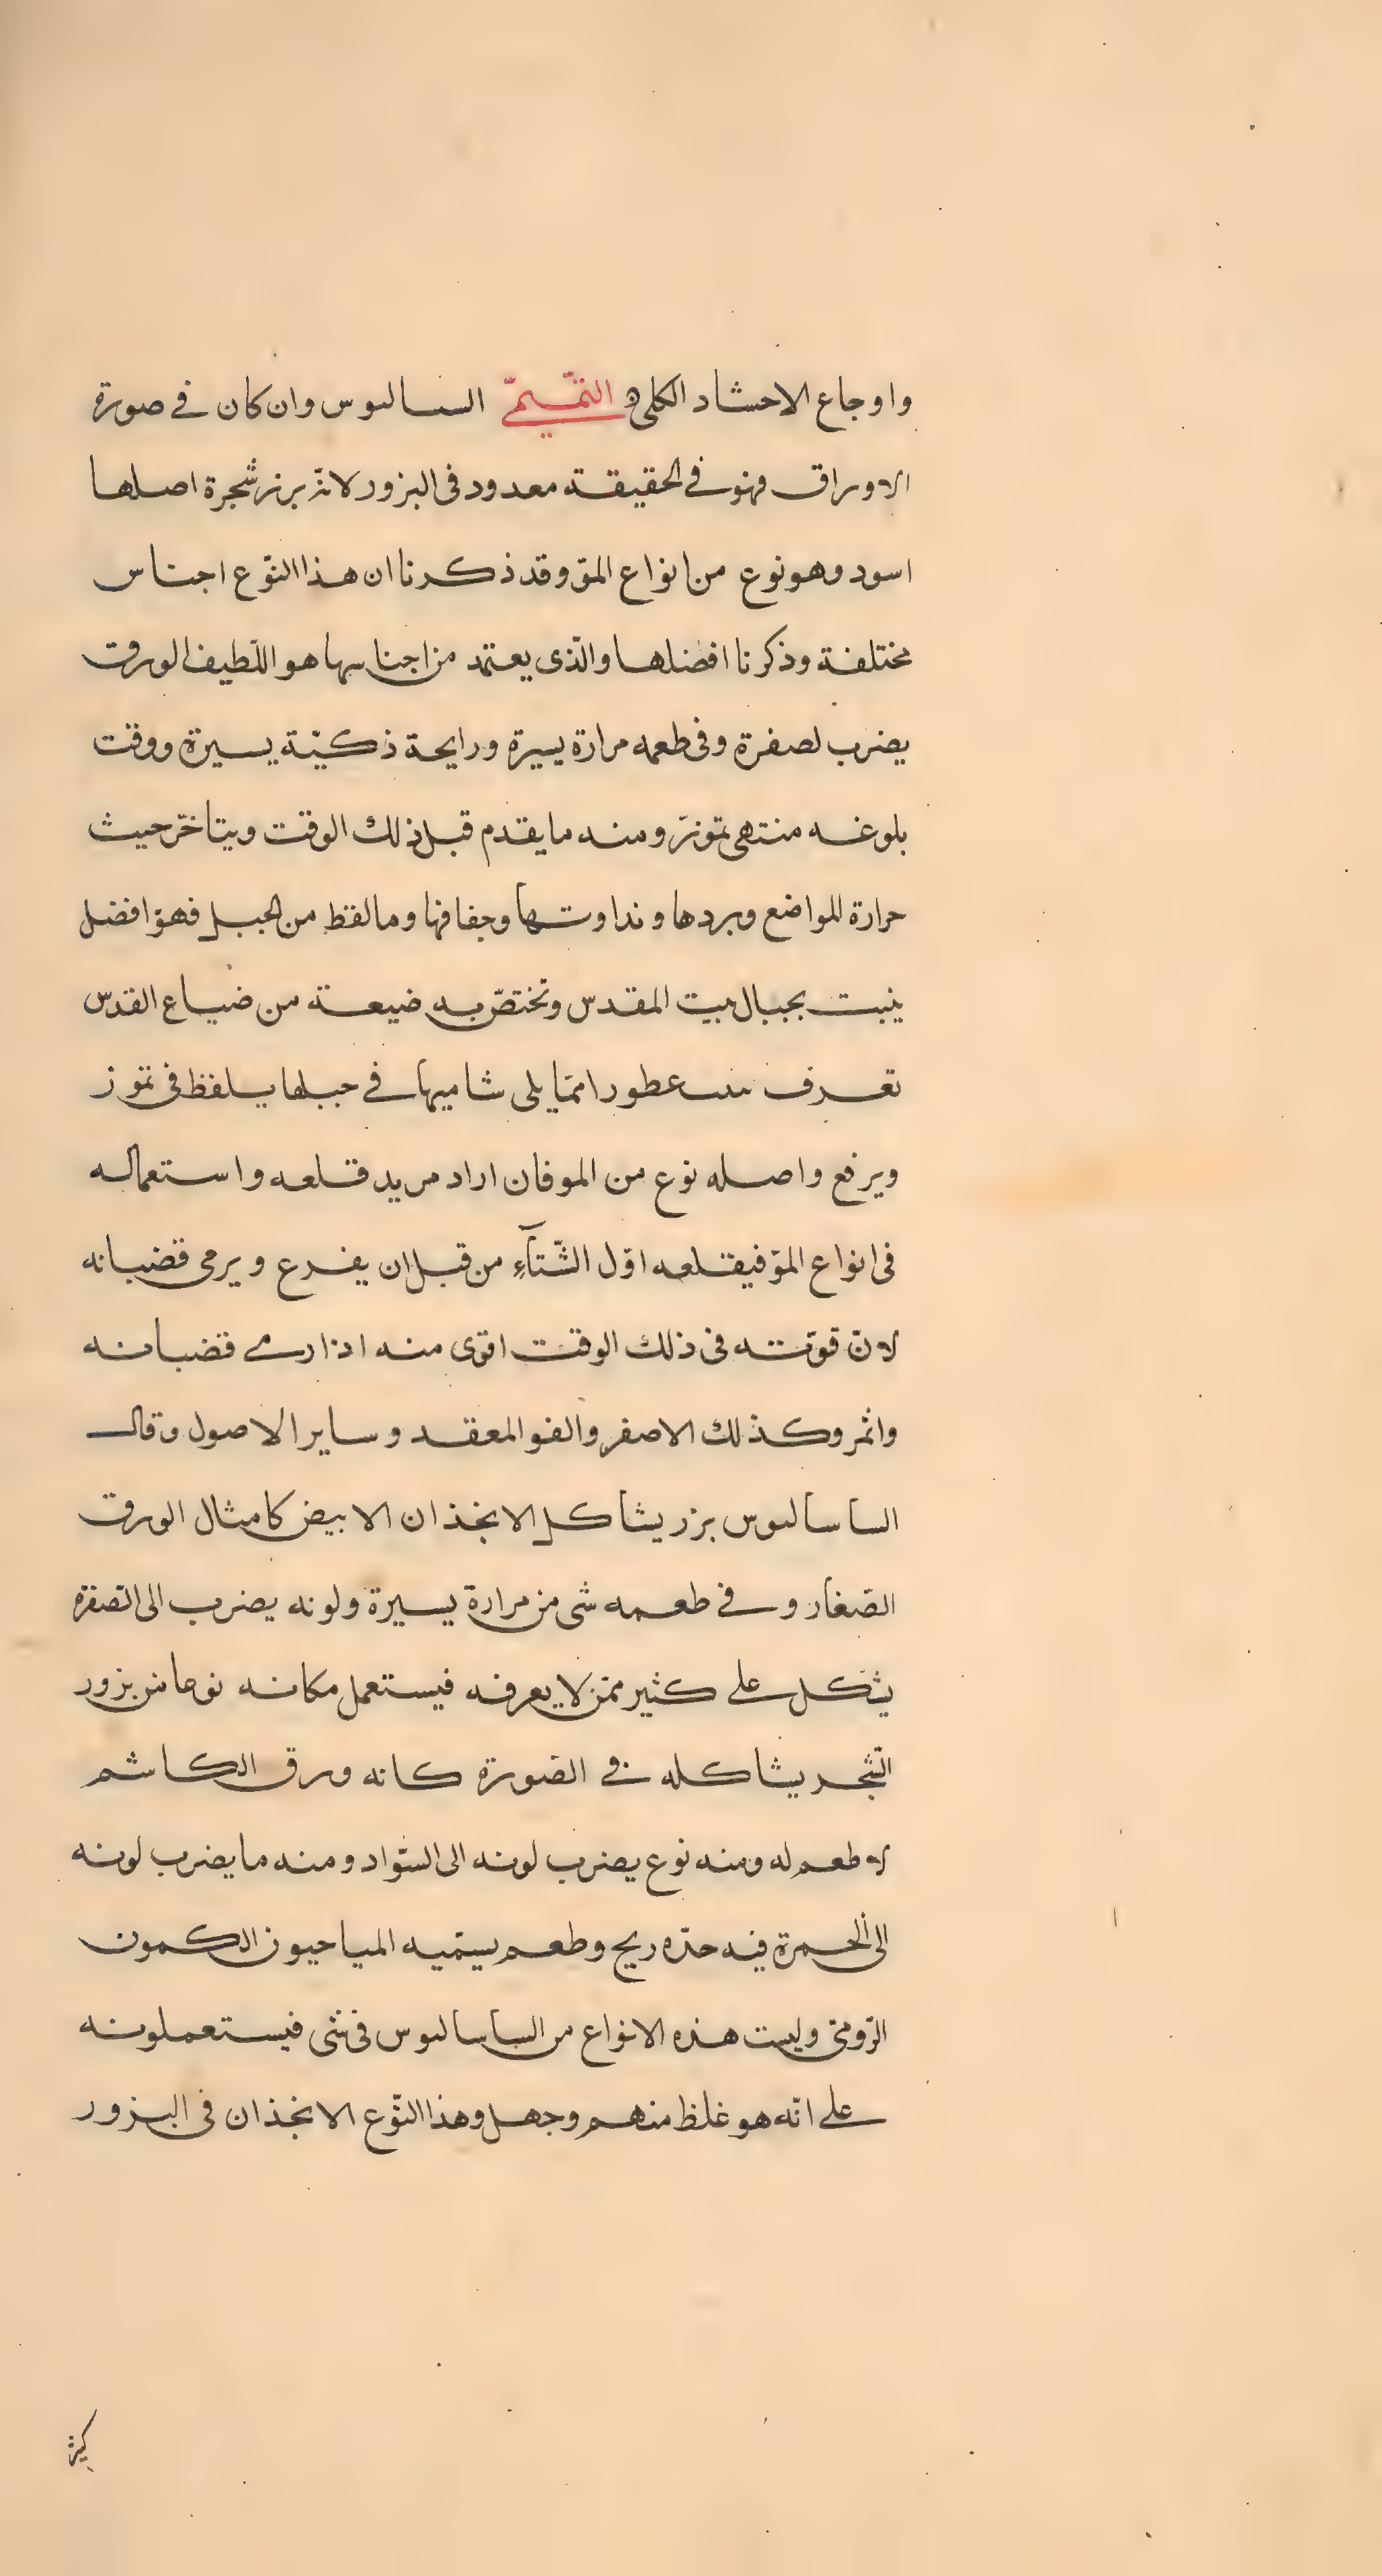 واوجاع الاحشاد الكلى ه التّميميّ السسالىوس وان كان في صورة
الاوراق فهو في الحقيقة معدود في البزور لانّه بزر شجرة اصلها
اسود وهو نوع من انواع الموّ وقد ذكرنا ان هذا النوّع اجناس
مختلفة وذكرنا افضلها والّذى يعتمد من اجناسها هو اللّطيف الورق
يضرب لصفرة وفى طعمه مرارة يسيرة ورايحة ذكيّة يسيرة ووقت
بلوغه منتهى تموز ومنه ما يقدم قبل ذلك الوقت ويتاخّر حيث
حرارة المواضع وبردها ونداوتها وجفافها وما لقط من الجبل فهو افضل
ينبت بجبال بيت المقدس وتختصّ به ضيعة من ضياع القدس
تعرف عطورا ممّا يلى شاميها في جبلها يلقط فى تموز
ويرفع واصله نوع من الموفان اراد مريد قلعه واستعماله
فى انواع الموّ فيقلعه اوّل الشّتآء من قبل ان يفرع ويرمى قضبانه
لانّ قوّته فى ذلك الوقت اقوى منه اذا رمى قضبانه
واثمر وكذلك الاصفر والفو المعقد وساير الاصول وقال
الساسالىوس بزر يشاكل الانجذان الابيض كامثال الورق
الصّغار وفي طعمه شى من مرارة يسيرة ولونه يضرب الى الصّفرة
يشكل على كثير ممّن لا يعرفه فيستعمل مكانه نوعا من بزور
الشّجر يشاكله في الصّورة كانه ورق الكاشم
لا طعم له ومنه نوع يضرب لونه الى السّواد ومنه ما يضرب لونه
الى الحمرة فيه حدّه ريح وطعم يسمّيه المياحيون الكمون
الرّومىّ وليست هذه الانواع من الساسالىوس فى شى فيستعملونه
على انّه هو غلظ منهم وجهل وهذا النّوع الانجذان فى البزور